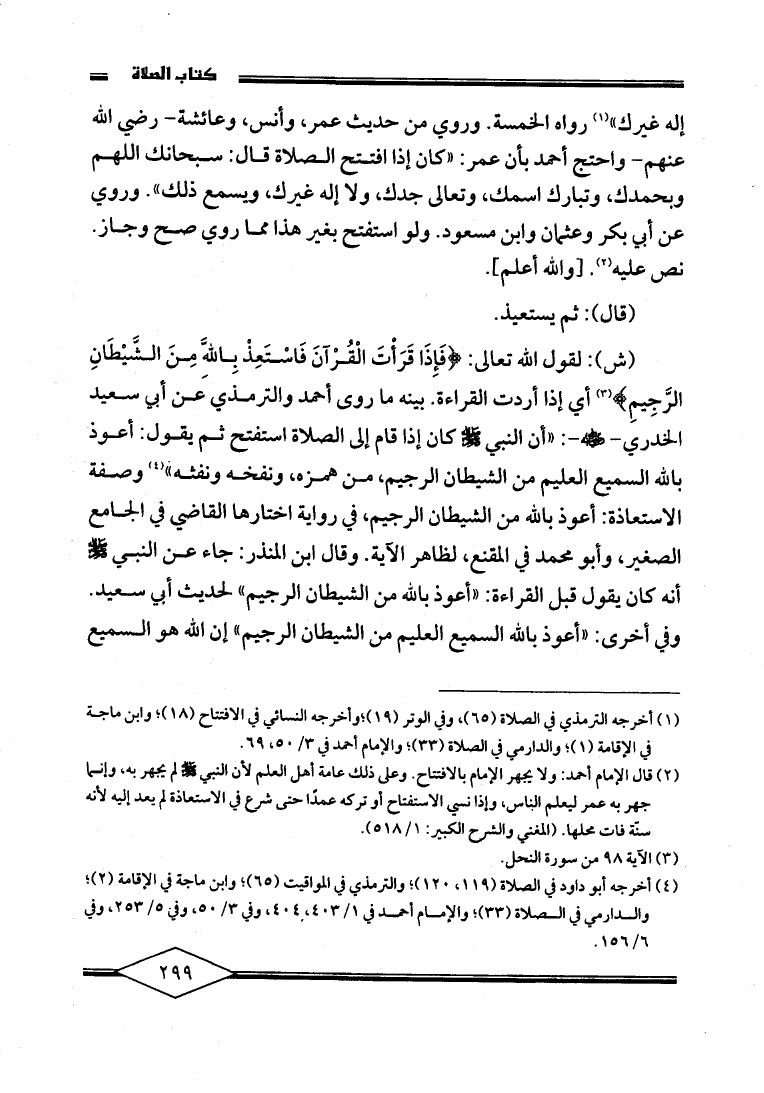 كتاب الصلاة
إله غيرك»(١) رواه الخمسة. وروي من حديث عمر، وأنس، وعائشة- رضي الله
عنهم- واحتج أحمد بأن عمر: «كان إذا افتتح الصلاة قال: سبحانك اللهم
وبحمدك، وتبارك اسمك، وتعالى جدك، ولا إله غيرك، ويسمع ذلك». وروي
عن أبي بكر وعثمان وابن مسعود. ولو استفتح بغير هذا مما روي صح وجاز.
نص عليه(٢). [والله أعلم].
(قال): ثم يستعيذ.
(ش): لقول الله تعالى: ﴿فَإِذَا قَرَأْتَ الْقُرْآنَ فَاسْتَعِذْ بِاللهِّ مِنَ الشَّيْطَانِ
الرَّجِيمِ﴾(٣) أي إذا أردت القراءة. بينه ما روى أحمد والترمذي عن أبي سعيد
الخدري- ﷺ-: «أن النبي ﷺ كان إذا قام إلى الصلاة استفتح ثم يقول: أعوذ
بالله السميع العليم من الشيطان الرجيم، من همزه، ونفخه ونفثه»(٤) وصفة
الاستعاذة: أعوذ بالله من الشيطان الرجيم، في رواية اختارها القاضي في الجامع
الصغير، وأبو محمد في المقنع، لظاهر الآية. وقال ابن المنذر: جاء عن النبي ﷺ
أنه كان يقول قبل القراءة: «أعوذ بالله من الشيطان الرجيم» لحديث أبي سعيد.
وفي أخرى: «أعوذ بالله السميع العليم من الشيطان الرجيم» إن الله هو السميع
(١) أخرجه الترمذي في الصلاة (٦٥)، وفي الوتر (١٩)؛وأخرجه النسائي في الافتتاح (١٨)؛ وابن ماجة
في الإقامة (١)؛ والدارمي في الصلاة (٣٣)؛ والإمام أحمد في ٣/ ٥٠، ٦٩.
(٢) قال الإمام أحمد: ولا يجهر الإمام بالافتتاح. وعلى ذلك عامة أهل العلم لأن النبي ﷺ لم يجهر به، وإنما
جهر به عمر ليعلم الناس، وإذا نسي الاستفتاح أو تركه عمدًا حتى شرع في الاستعاذة لم يعد إليه لأنه
سنّة فات محلها. (المغني والشرح الكبير: ١/ ٥١٨).
(٣) الآية ٩٨ من سورة النحل.
(٤) أخرجه أبو داود في الصلاة (١١٩، ١٢٠)؛ والترمذي في المواقيت (٦٥)؛ وابن ماجة في الإقامة (٢)؛
والدارمي في الصلاة (٣٣)؛ والإمام أحمد في ١/ ٤٠٣، ٤٠٤، وفي ٣/ ٥٠، وفي ٥/ ٢٥٣، وفي
٦/ ١٥٦.
٢٩٩